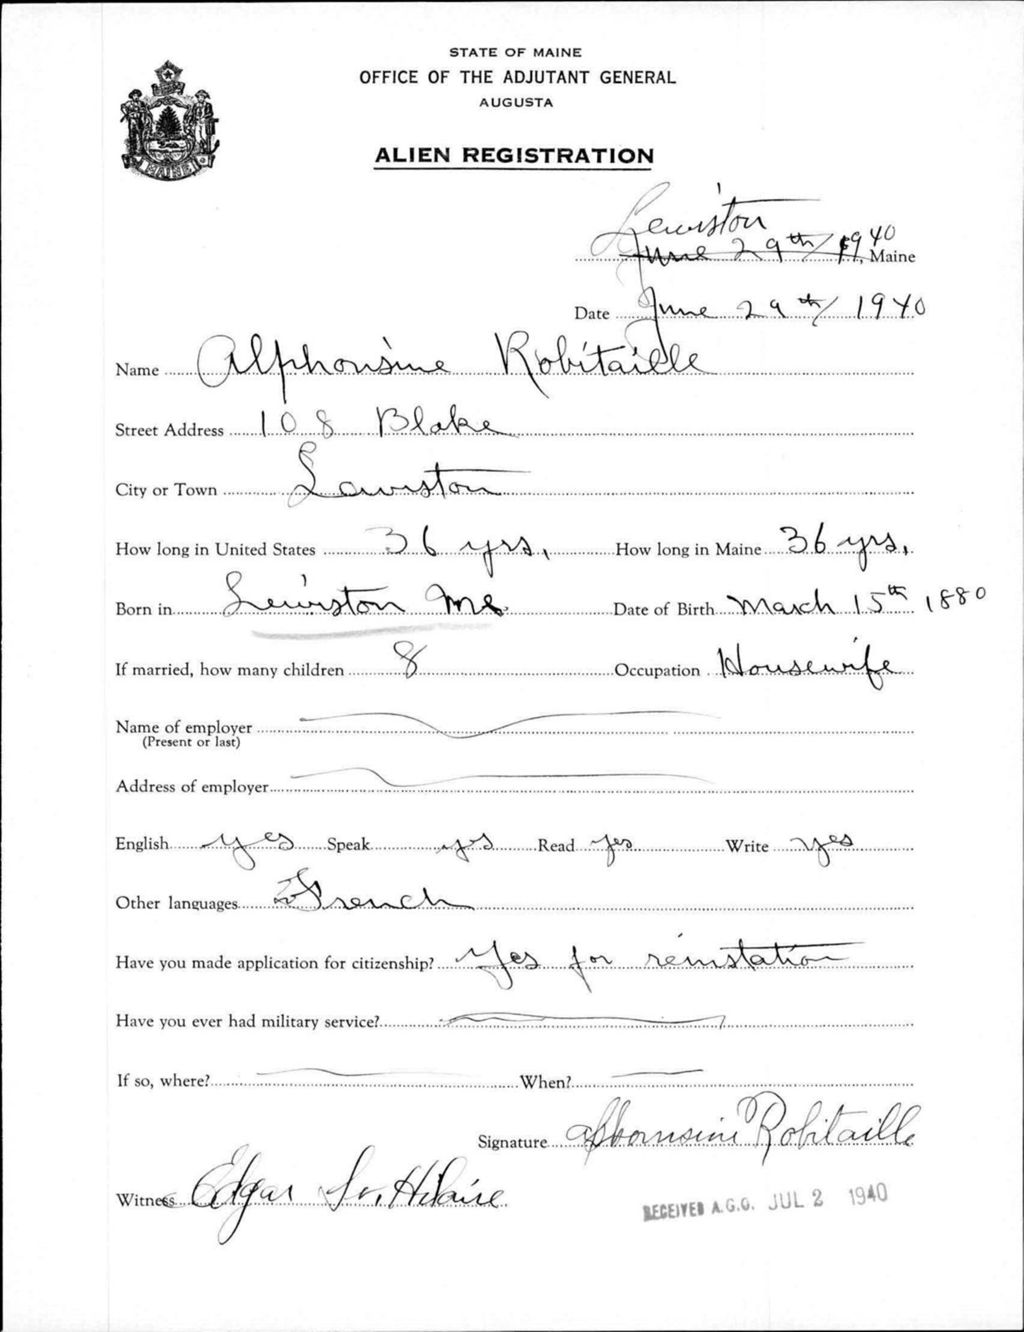 STATE OF MAINE
OFFICE OF THE ADJUTANT GENERAL
AUGUSTA
MAINE
ALIEN REGISTRATION
Lewiston
June 29th/1940, Maine
Date June 29th/1940
Name Alphonsine Robitaille
Street Address 108 Blake
City or Town Lewiston
How long in United States 36 yrs, How long in Maine 36 yrs,
Born in Lewiston Me. Date of Birth March 15th 1880
If married, how many children 8 Occupation Housewife
Name of employer
(Present or last)
Address of employer
English yes Speak yes Read yes Write yes
Other languages French
Have you made application for citizenship? Yes for reinstation
Have you ever had military service?
If so, where? When?
Signature Alphonsine Robitaille
Witness Edgar St. Hilaire
RECEIVED A.G.O. JUL 2 1940